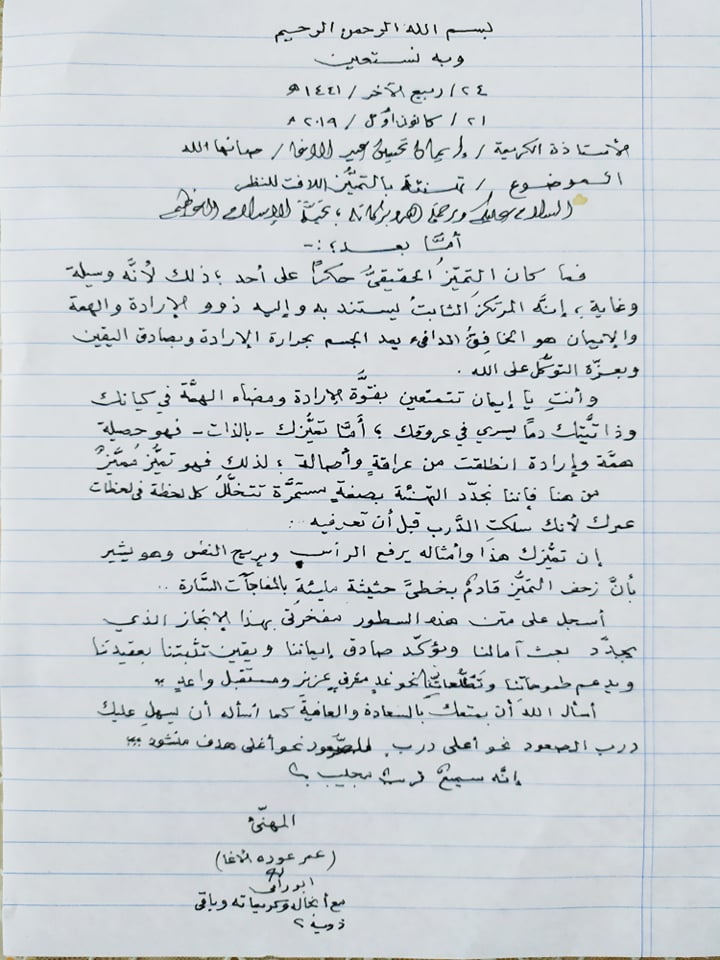 بسم الله الرحمن الرحيم
وبه نستعين
٢٤ / ربيع الآخر / ١٤٤١ هـ
٢١ / كانون أول / ٢٠١٩ م
الأستاذة الكريمة / إيمان تحسين عبد الأغا / صانها الله
الموضوع / تهنئة بالتميُّز اللافت للنظر
السلام عليكم ورحمة الله وبركاته ؛ تحيَّة الإسلام العظيم
أمَّا بعد ؛ :-
فما كان التميّزُ الحقيقيُّ حكرًا على أحد ؛ ذلك لأنَّه وسيلة
وغاية ؛ إنَّه المرتكزُ الثابتُ يستند به وإليه ذوو الإرادة والهمة
والإيمان هو الخافقُ الدافىء يمد الجسم بحرارة الإرادة وبصادق اليقين
وبعزّة التوكّل على الله .
وأنتِ يا إيمان تتمتعين بقوَّة الإرادة ومضاء الهمَّة في كيانك
وذاتيَّتك دمًا يسري في عروقك ؛ أمَّا تميُّزك - بالذات - فهو حصيلة
همَّة وإرادة انطلقت من عراقةٍ وأصالة ؛ لذلك فهو تميُّز مُميَّزٌ
من هنا فإننا نجدّد التهنئة بصفةٍ مستمرَّة تتخلّلُ كل لحظة في لحظات
عمرك لأنك سلكتِ الدَّرب قبل أن تعرفيه ..
إن تميُّزك هذا وأمثاله يرفع الرأس ويريح النفس وهو يشير
بأنَّ زحف التميُّز قادمٌ بخطىً حثيثة مليئة بالمفاجآت السَّارة ..
أسجل على متن هذه السطور مفخرتي بهذا الإنجاز الذي
يجدّد بعث آمالنا ويؤكّد صادق إيماننا ويقين تثبتنا بعقيدتنا
ويدعم طموحاتنا وتطلعاتنا نحو غدٍ مشرقٍ عزيز ومستقبل واعدٍ ..
أسأل اللهَ أن يمتعك بالسعادة والعافية كما أسأله أن يسهل عليك
درب الصعود نحو أعلى درب للصُّعود نحو أغلى هدف منشود ..
إنَّه سميعٌ قريبٌ مجيب
المهنّئ
(عمر عوده الأغا)
أبو رامي
مع أنجاله وكريماته وباقي
ذويه